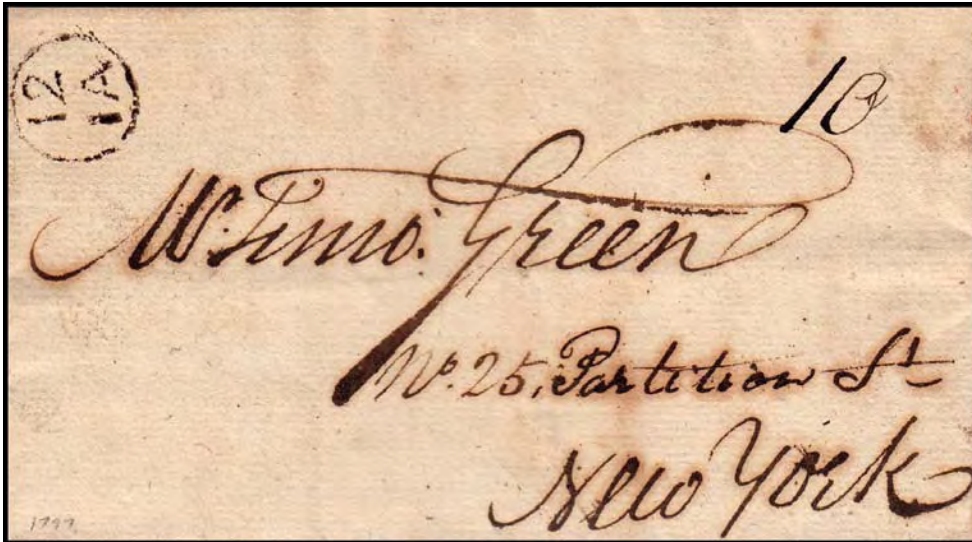 12
1A
10
Mr. Timo. Green
No. 25, Partition St
New York
1797